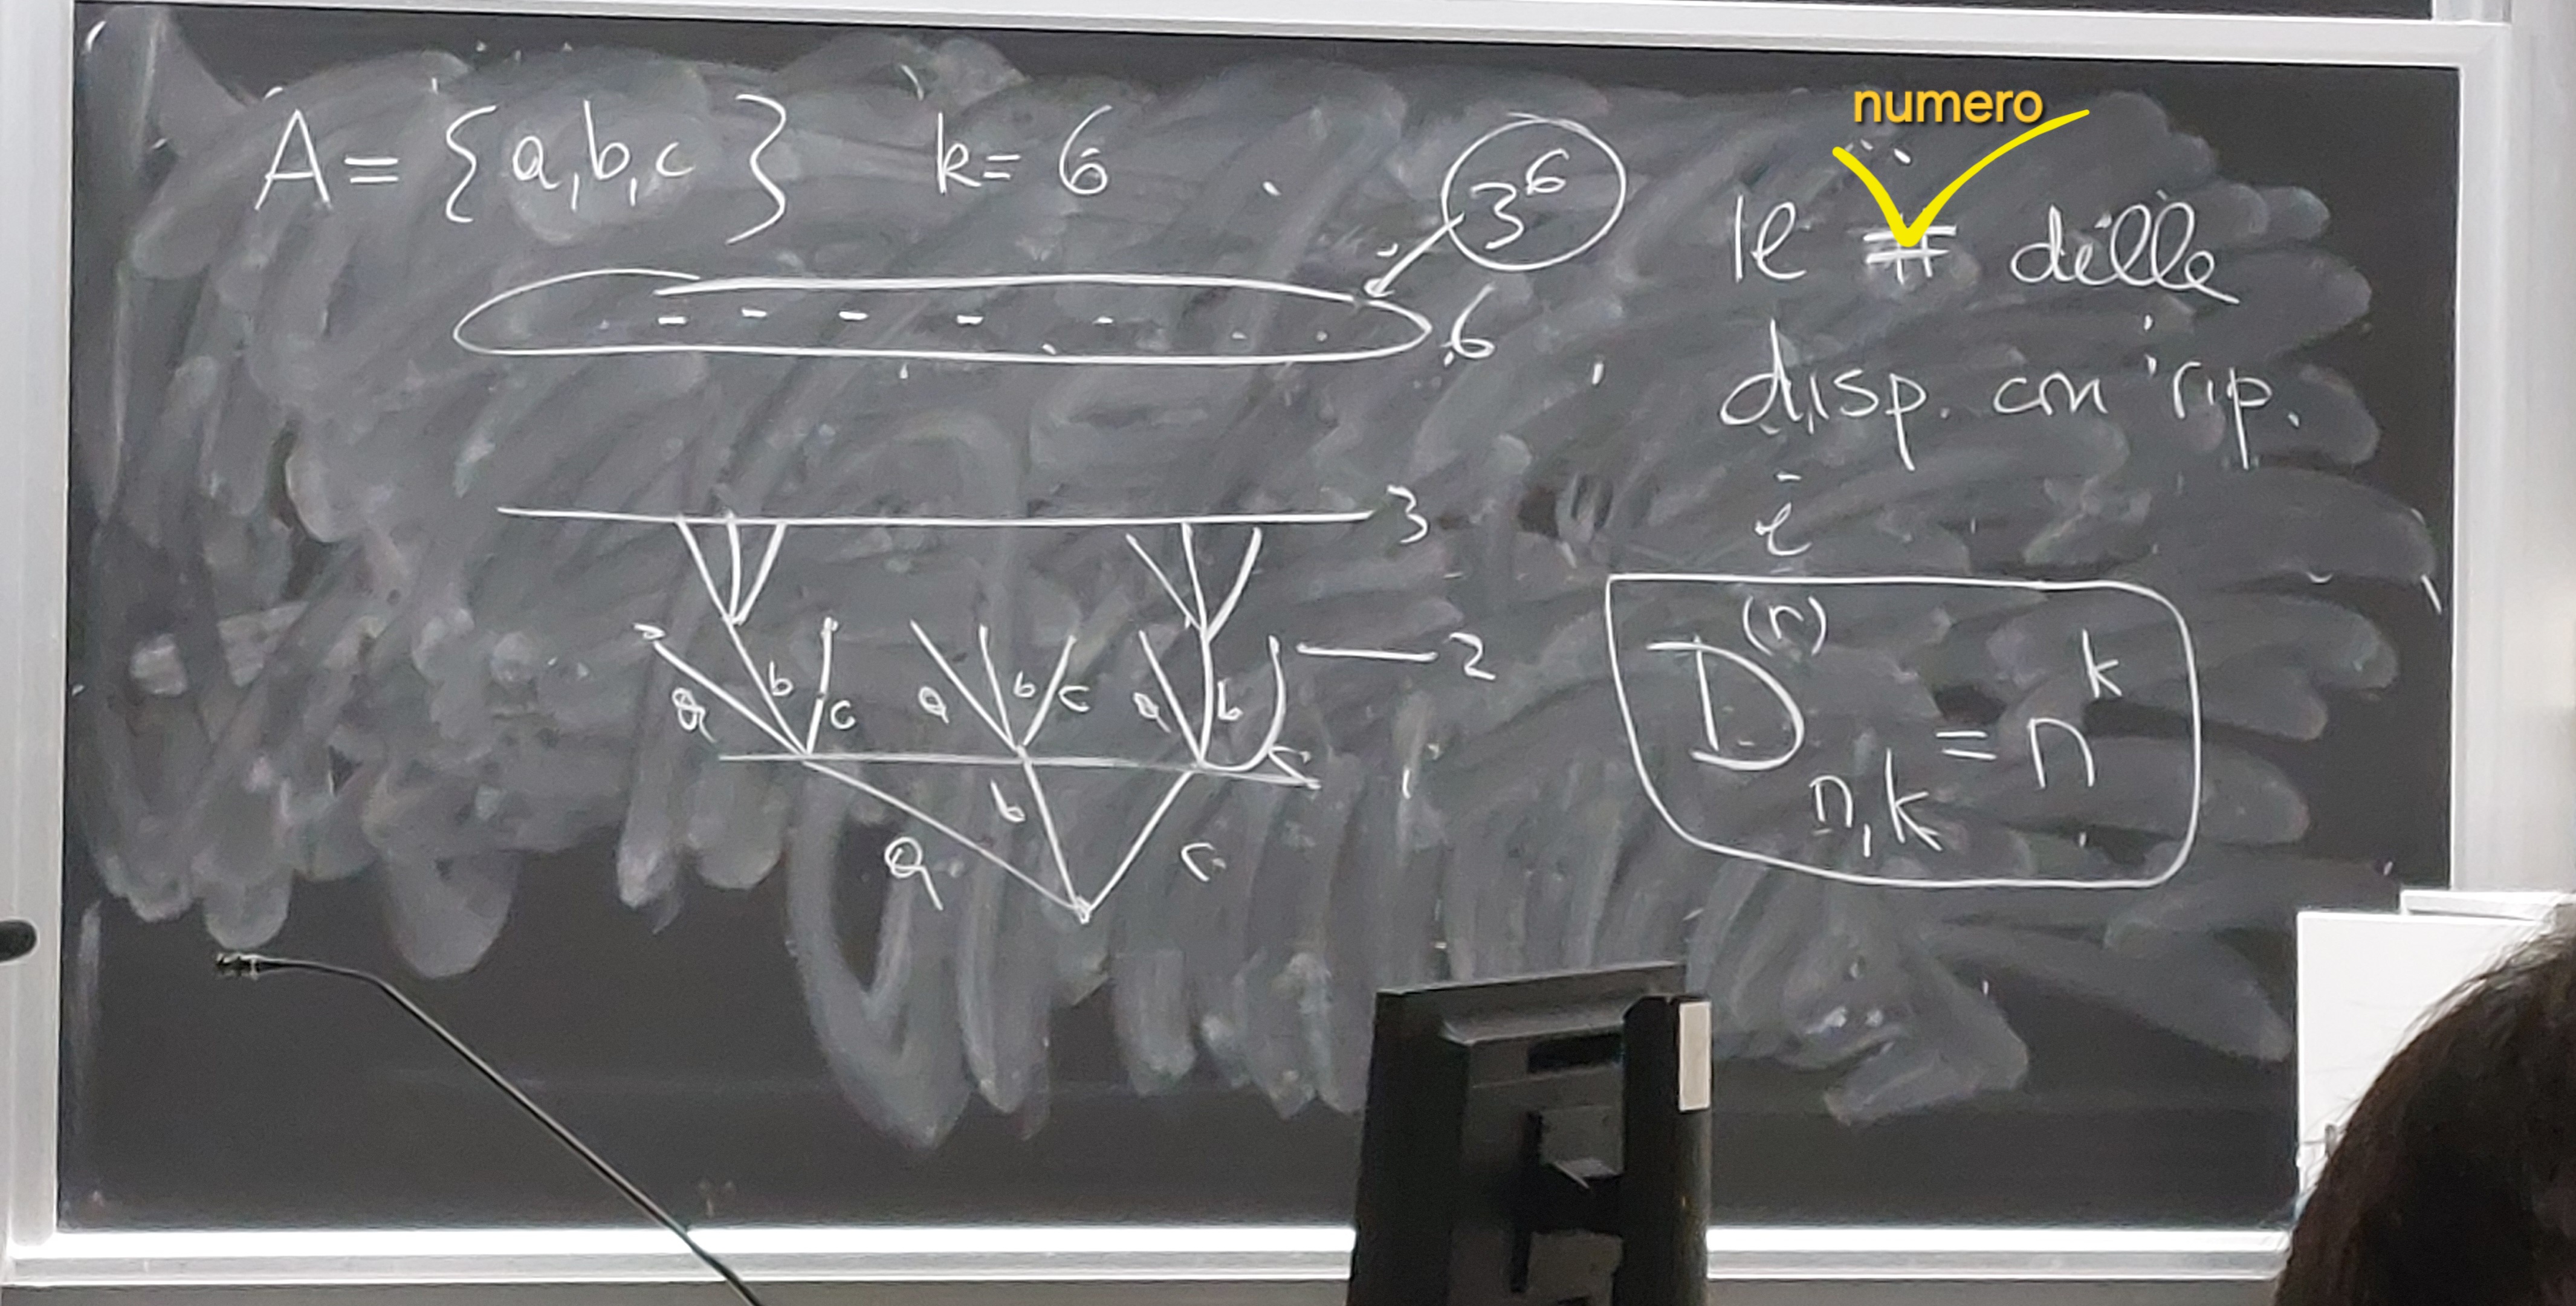 A = {a,b,c} k = 6
3⁶
6
3
a b c a b c a b c
2
1
a b c
numero
Il # delle
disp. con rip.
è
D⁽ʳ⁾ₙ,ₖ = nᵏ